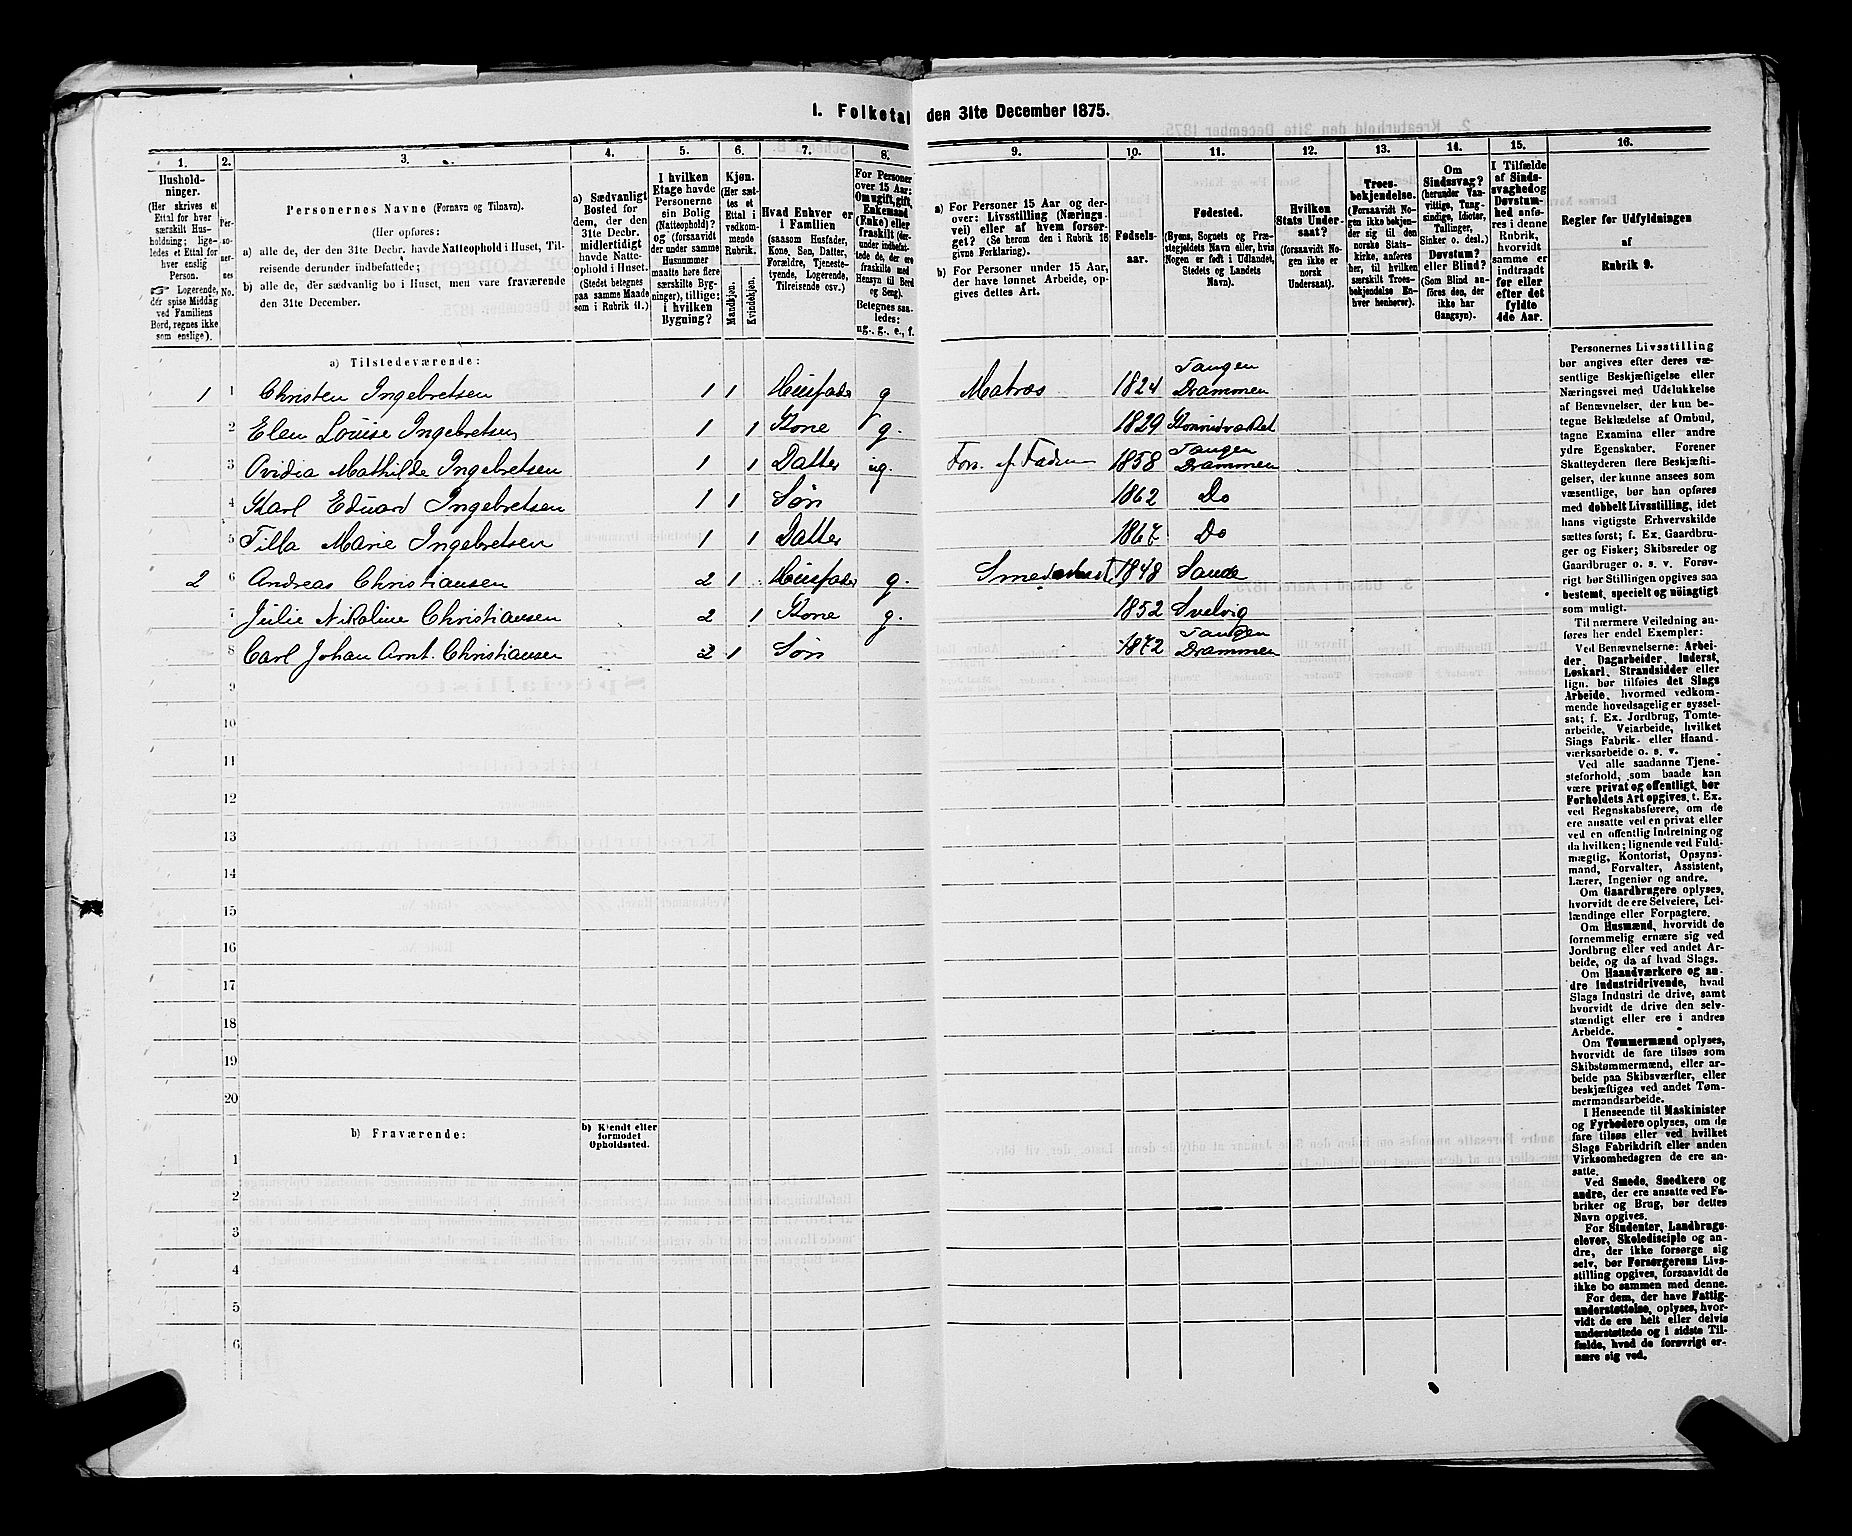 I. Folketal den 31te December 1875.
1.
Husholdninger.
(Her skrives et
Ettal for hver
særskilt Husholdning;
ligeledes
et Ettal for
hver enslig
Person.
Logerende,
der spise Middag
ved Familiens
Bord, regnes ikke
som enslige).
2.
Personernes
No.
3.
Personernes Navne (Fornavn og Tilnavn).
(Her opføres:
a) alle de, der den 31te Decbr. havde Natteophold i Huset, Tilreisende
derunder indbefattede;
b) alle de, der sædvanlig bo i Huset, men vare fraværende
den 31te December.
4.
a) Sædvanligt
Bosted for
dem, der den
31te Decbr.
midlertidigt
havde Natteophold
i Huset.
(Stedet betegnes
paa samme Maade
som i Rubrik 11.)
5.
I hvilken
Etage havde
Personerne
sin Bolig
(Natteophold)?
og (forsaavidt
der under samme
Husnummer
maatte høre flere
særskilte Bygninger),
tillige:
i hvilken
Bygning?
6.
Kjøn.
(Her sættes
et
Ettal i
vedkommende
Rubrik.
Mandkjøn.
Kvindekjøn.
7.
Hvad Enhver er
i Familien
(saasom Husfader,
Kone, Søn, Datter,
Forældre, Tjenestetyende,
Logerende,
Tilreisende osv.)
8.
For Personer
over 15 Aar:
Om ugift, gift,
Enkemand
(Enke) eller
fraskilt (derunder
indbefattede
de, der ere
fraskilte med
Hensyn til Bord
og Seng).
Betegnes saaledes:
ug., g., e., f.
9.
a) For Personer 15 Aar og derover:
Livsstilling (Næringsvei)
eller af hvem forsørget?
(Se herom den i Rubrik 16
givne Forklaring).
b) For Personer under 15 Aar,
der have lønnet Arbeide, opgives
dettes Art.
10.
Fødselsaar.
11.
Fødested.
(Byens, Sognets og Præstegjeldets
Navn eller, hvis
Nogen er født i Udlandet,
Stedets og Landets
Navn).
12.
Hvilken
Stats Undersaat?
(forsaavidt Nogen
ikke er
norsk
Undersaat).
13.
Troesbekjendelse.
(Forsaavidt Nogen
ikke bekjender
sig til den
norske Statskirke,
anføres
her, til hvilken
særskilt Troesbekjendelse
Enhver
henhører).
14.
Om
Sindssvag?
(herunder Vanvittige,
Tungsindige,
Idioter,
Tullinger,
Sinker o. desl.)
Døvstum?
eller Blind?
(Som Blind anføres
den, der
ikke har
Gangsyn).
15.
I Tilfælde
af Sindssvaghed
og
Døvstumhed
anføres
i denne
Rubrik,
hvorvidt
samme er
indtraadt
før eller
efter det
fyldte
4de Aar.
16.
Regler for Udfyldningen
af
Rubrik 9.
a) Tilstedeværende:
1 1 Christen Ingebretsen 1 1 Husfader g Matros 1824 Tangen Drammen
2 Elen Louise Ingebretsen 1 1 Kone g. 1829
3 Ovidia Mathilde Ingebretsen 1 1 Datter ug. Fors. af Faderen 1858 Tangen Drammen
4 Karl Eduard Ingebretsen 1 1 Søn 1862 Do
5 Tilla Marie Ingebretsen 1 1 Datter 1867 Do
2 6 Andreas Christiansen 2 1 Husfader g. 1848 Sande
7 Julie Nikoline Christiansen 2 1 Kone g. 1852 Svelvig
8 Carl Johan Arnt. Christiansen 2 1 Søn 1872 Tangen Drammen
9
10
11
12
13
14
15
16
17
18
19
20
b) Fraværende:
b) Kjendt eller
formodet
Opholdssted.
1
2
3
4
5
6
Personernes Livsstilling
bør angives efter deres væsentlige
Beskjæftigelse eller
Næringsvei med Udelukkelse
af Benævnelser, der kun betegne
Beklædelse af Ombud,
tagne Examina eller andre
ydre Egenskaber. Forener
Skatteyderen flere Beskjæftigelser,
der kunne ansees som
væsentlige, bør han opføres
med dobbelt Livsstilling, idet
hans vigtigste Erhvervskilde
sættes først; f. Ex. Gaardbruger
og Fisker; Skibsreder og
Gaardbruger o. s. v. Forøvrigt
bør Stillingen opgives saa
bestemt, specielt og nøiagtigt
som muligt.
Til nærmere Veiledning anføres
her endel Exempler:
Ved Benævnelserne: Arbeider,
Dagarbeider, Inderst,
Løskarl, Strandsidder eller
lign. bør tilføies det Slags
Arbeide, hvormed vedkommende
hovedsagelig er sysselsat;
f. Ex. Jordbrug, Tomtearbeide,
Veiarbeide, hvilket
Slags Fabrik- eller Haandværksarbeide
o. s. v.
Ved alle saadanne Tjenesteforhold,
som baade kan
være privat og offentligt, bør
Forholdets Art opgives, t. Ex.
ved Regnskabsførere, om de
ere ansatte ved en privat eller
ved en offentlig Indretning og
da hvilken; lignende ved Fuldmægtig,
Kontorist, Opsynsmand,
Forvalter, Assistent,
Lærer, Ingeniør og andre.
Om Gaardbrugere oplyses,
hvorvidt de ere Selveiere, Leilændinge
eller Forpagtere.
Om Husmænd, hvorvidt de
fornemmelig ernære sig ved
Jordbrug eller ved andet Arbeide,
og da af hvad Slags.
Om Haandværkere og andre
Industridrivende, hvad
Slags Industri de drive, samt
hvorvidt de drive den selvstændigt
eller ere i andres
Arbeide.
Om Tømmermænd oplyses,
hvorvidt de fare tilsøs som
Skibstømmermænd, eller arbeide
paa Skibsværfter, eller
beskjæftiges ved andet Tømmermandsarbeide.
I Henseende til Maskinister
og Fyrbødere oplyses, om de
fare tilsøs eller ved hvilket
Slags Fabrikdrift eller anden
Virksomhedsgren de ere ansatte.
Ved Smede, Snedkere og
andre, der ere ansatte ved Fabriker
og Brug, bør dettes
Navn opgives.
For Studenter, Landbrugselever,
Skoledisciple og andre,
der ikke forsørge sig
selv, bør Forsørgerens Livsstilling
opgives, forsaavidt de
ikke bo sammen med denne.
For dem, der have Fattigunderstøttelse,
oplyses, hvorvidt
de ere helt eller delvis
understøttede og i sidste Tilfælde,
hvad de forøvrigt ernære
sig ved.